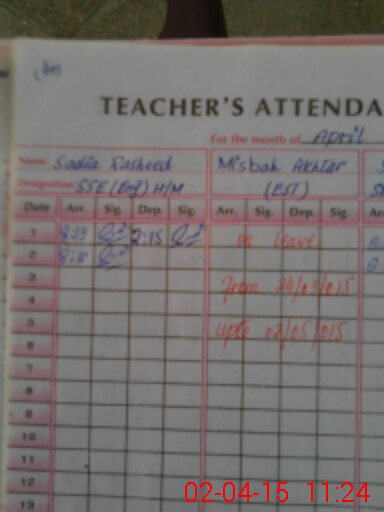 TEACHER'S ATTENDA
For the month of April
Name Sadia Rasheed Misbah Akhtar
Designation SSE (Eng) H/M (EST)
Date Arr. Sig. Dep. Sig. Arr. Sig. Dep. Sig. Ar
1 8:23 2:15 on leave
2
3 from 24/03/015
4
5 upto 02/05/015
6
7
8
9
10
11
12
13
02-04-15 11:24